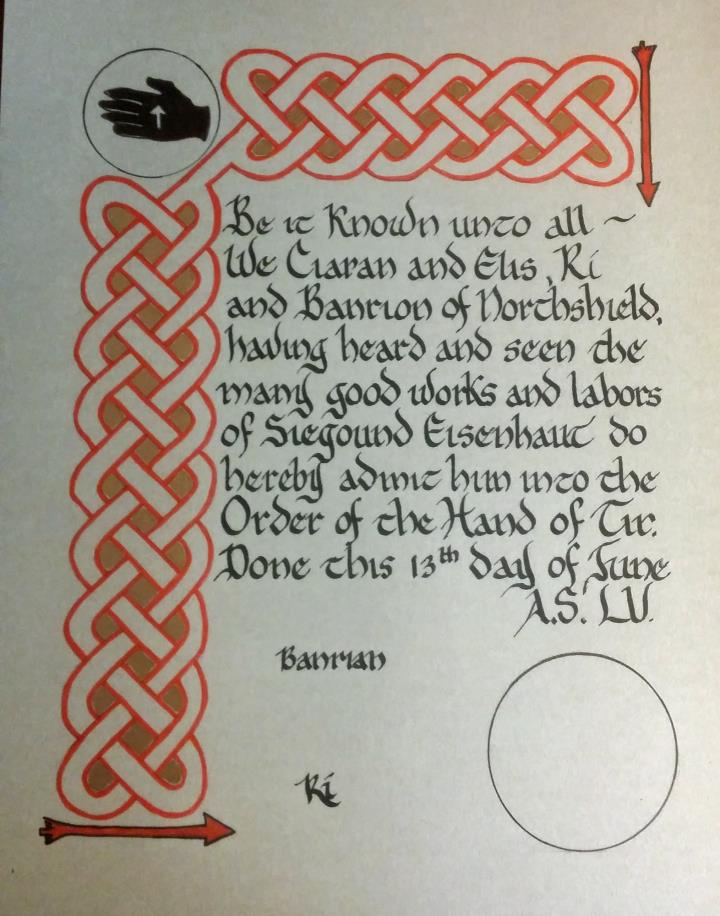 Be it Known unto all ~
We Ciaran and Elis, Rí
and Banrion of Northshield,
having heard and seen the
many good works and labors
of Siegound Eisenhaut do
hereby admit him into the
Order of the Hand of Tir.
Done this 13th day of June
A.S. LV.
Banrian
Rí